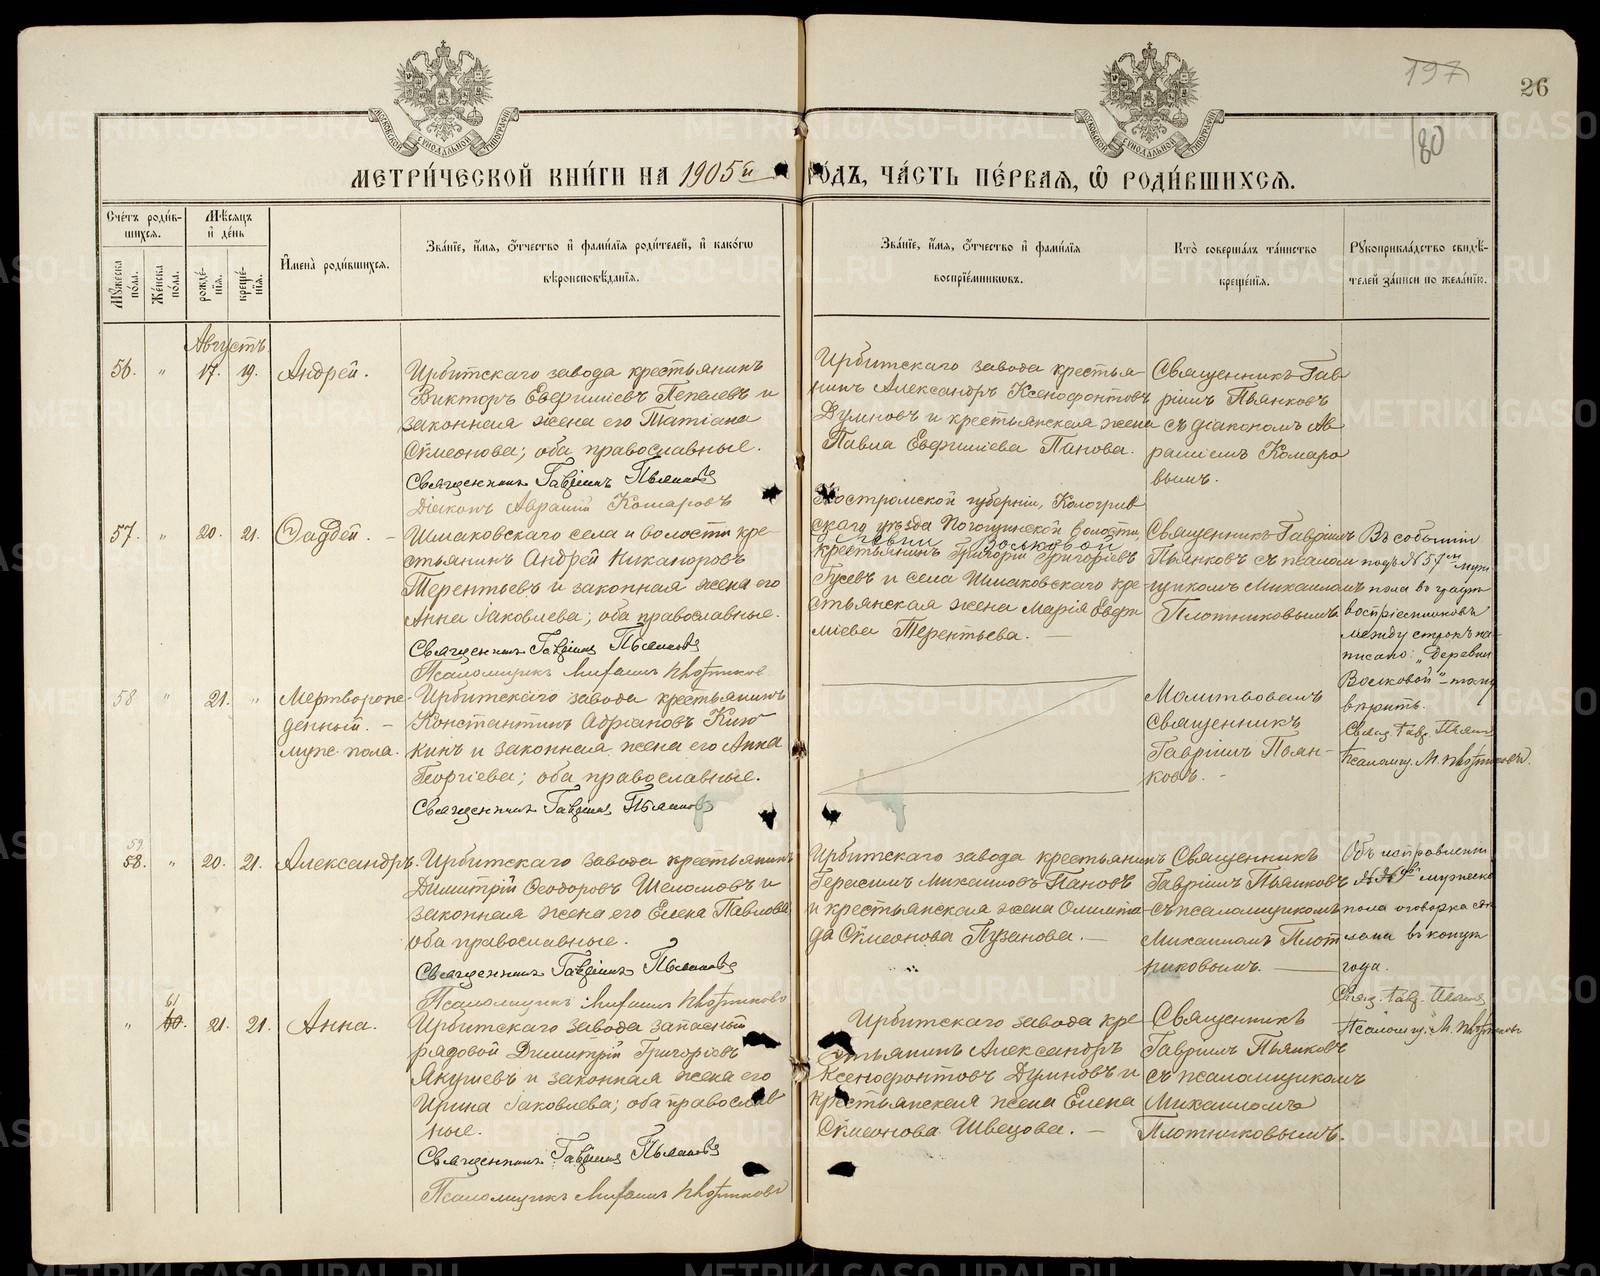 197
26
180
МЕТРИ́ЧЕСКОЙ КНИ́ГИ НА 1905й ГОДЪ, ЧА́СТЬ ПЕ́РВАЯ, Ѡ РОДИ́ВШИХСЯ.
Счетъ роди́в-
шихся.
Мѣсяцъ
и день
Имена̀ роди́вшихся.
Зва́нїе, и́мя, о́тчество и фами́лїя роди́телей, и како́гѡ
вѣроисповѣ́данїя.
Зва́нїе, и́мя, о́тчество и фами́лїя
воспрїе́мникѡвъ.
Кто̀ соверша́лъ та́инство
креще́нїя.
Рукоприкла́дство свидѣ́-
телей за́писи по жела́нїю.
Мужеска пола.
Женска пола.
рожде́-
нїя.
креще́-
нїя.
Августъ
56. " 17. 19. Андрей.
Ирбитскаго завода крестьянинъ
Викторъ Евфимиевъ Пепелевъ и
законная жена его Татіана
Сѵмеонова; оба православные.
Священникъ Гавріилъ Пьянковъ
Діаконъ Авраамій Комаровъ
Ирбитскаго завода крестья-
нинъ Александръ Ксенофонтовъ
Думновъ и крестьянская жена
Павла Евфимиева Панова.
Священникъ Гав-
ріилъ Пьянковъ
съ діакономъ Ав-
раміемъ Комаро
вымъ.
57. " 20. 21. Фаддей. -
Шмаковскаго села и волости кре-
стьянинъ Андрей Никаноровъ
Терентьевъ и законная жена его
Анна Іаковлева; оба православные.
Священникъ Гавріилъ Пьянковъ
Псаломщикъ Михаилъ Плотниковъ
Костромской губерніи, Кологрив-
скаго уѣзда волости,
Деревни Волковой
крестьянинъ Григорій Григорьевъ
Гусевъ и села Шмаковскаго кре-
стьянская жена Марія Евфи-
міева Терентьева. —
Священникъ Гавріилъ
Пьянковъ съ псалом-
щикомъ Михаиломъ
Плотниковымъ.
Въ событіи
подъ № 57мъ муж.
пола въ графѣ
воспріемниковъ
между строкъ на-
писано: „Деревни
Волковой" – тому
вѣрить.
Свящ. Гавр. Пьянк
Псаломщ. М. Плотниковъ.
58 " 21. " Мертворожде-
денный. -
муж. пола.
Ирбитскаго завода крестьянинъ
Константинъ Адріановъ Кию
кинъ и законная жена его Анна
Георгіева; оба православные.
Священникъ Гавріилъ Пьянковъ
Молитвовалъ
священникъ
Гавріилъ Пьян-
ковъ. -
59
58. " 20. 21. Александръ.
Ирбитскаго завода крестьянинъ
Димитрій Ѳеодоровъ Шеломовъ и
законная жена его Елена Павлова
оба православные.
Священникъ Гавріилъ Пьянковъ
Псаломщикъ Михаилъ Плотниковъ
Ирбитскаго завода крестьянинъ
Герасимъ Михаиловъ Пановъ
и крестьянская жена Олимпіа-
да Сѵмеонова Пузанова. —
Священникъ
Гавріилъ Пьянковъ
съ псаломщикомъ
Михаиломъ Плот
никовымъ. —
Объ исправленіи
№№ мужеска
пола оговорка сдѣ
лана въ концѣ
года.
Свящ. Гавр. Пьянк
Псаломщ. М. Плотниковъ
61
" 60. 21. 21. Анна.
Ирбитскаго завода запасный
рядовой Димитрій Григорьевъ
Якушевъ и законная жена его
Ирина Іаковлева; оба православ
ные.
Священникъ Гавріилъ Пьянковъ
Псаломщикъ Михаилъ Плотниковъ
Ирбитскаго завода кре-
стьянинъ Александръ
Ксенофонтовъ Думновъ и
крестьянская жена Елена
Сѵмеонова Швецова. —
Священникъ
Гавріилъ Пьянковъ
съ псаломщикомъ
Михаиломъ
Плотниковымъ.